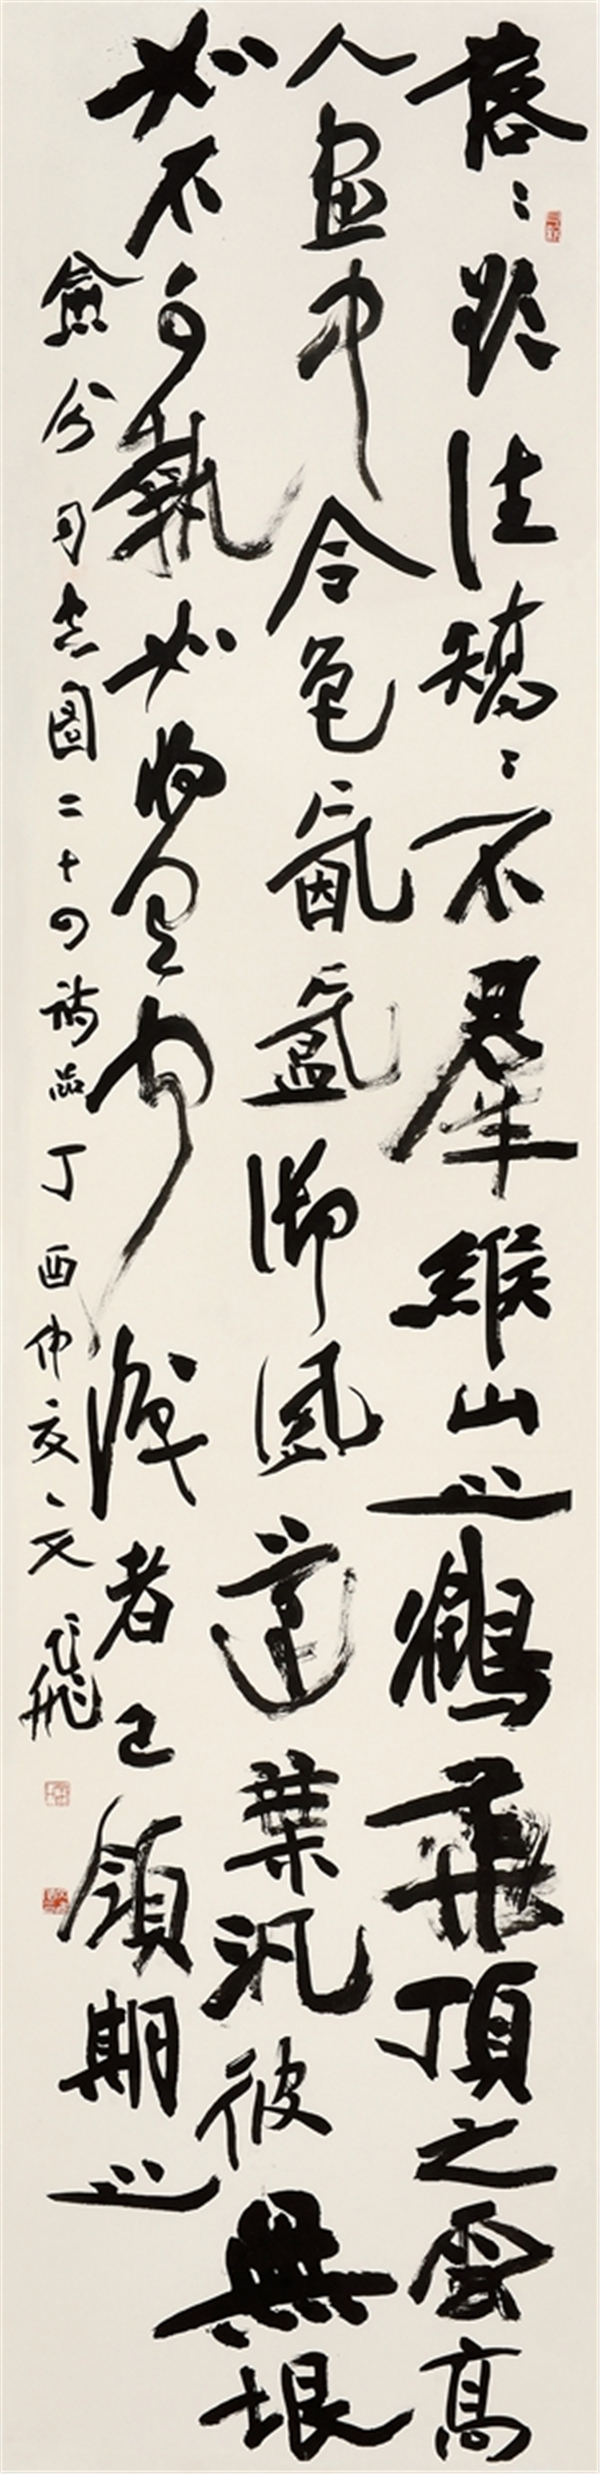 落〻欲往矯〻不羣緱山之鶴華頂之雲高
人畫中令色氤氳御風蓬葉汎彼無垠
如不可執如將有聞識者已領期之
愈分司空圖二十四詩品丁酉仲夏文飛